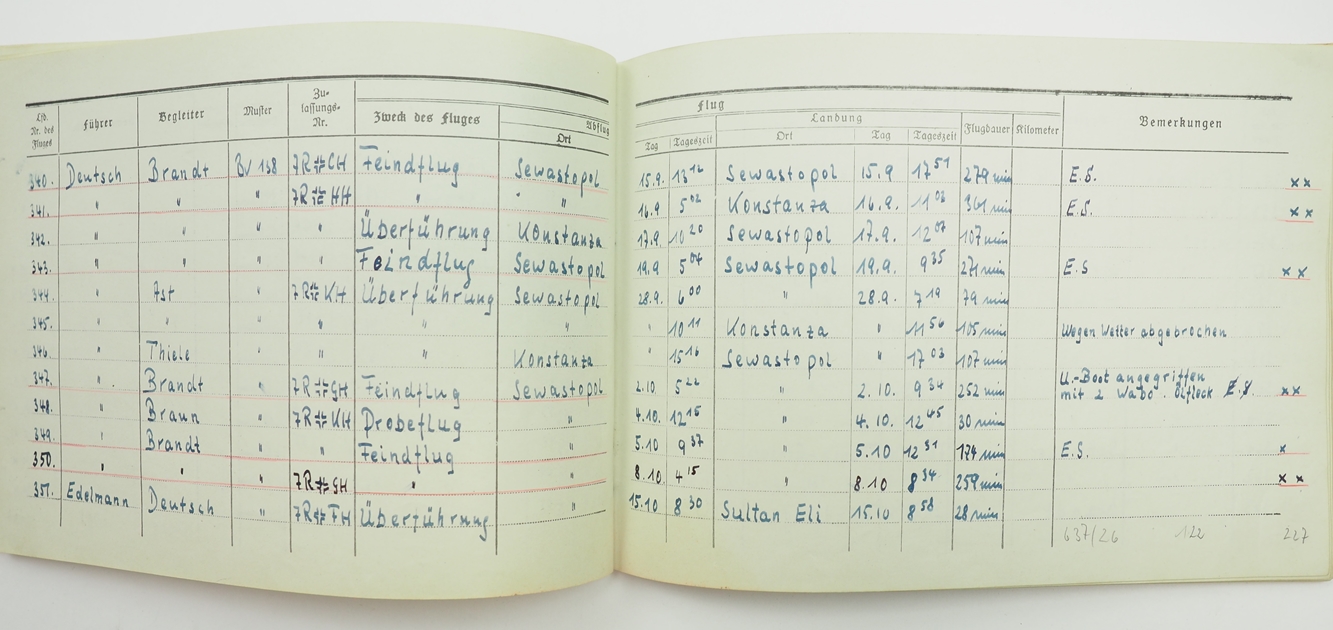 Lfd. Nr. des Fluges Führer Begleiter Muster Zulassungs-Nr. Zweck des Fluges Abflug Ort
340. Deutsch Brandt BV 138 7R+CH Feindflug Sewastopol
341. " " " 7R+HH " "
342. " " " " Überführung Konstanza
343. " " " " Feindflug Sewastopol
344. " Ast " 7R+KH Überführung Sewastopol
345. " " " " " "
346. " Thiele " " Konstanza
347. " Brandt " 7R+GH Feindflug Sewastopol
348. " Braun " 7R+KH Probeflug "
349. " Brandt " " Feindflug "
350. " " " 7R+GH " "
351. Edelmann Deutsch " 7R+FH Überführung "
Flug
Landung
Tag Tageszeit Ort Tag Tageszeit Flugdauer Kilometer Bemerkungen
15.9. 13 12 Sewastopol 15.9 17 51 279 min E.S. x x
16.9. 5 02 Konstanza 16.9. 11 03 361 min E.S. x x
17.9. 10 20 Sewastopol 17.9. 12 07 107 min
19.9 5 04 Sewastopol 19.9. 9 35 271 min E.S x x
28.9. 6 00 " 28.9. 7 19 79 min
" 10 11 Konstanza " 11 56 105 min Wegen Wetter abgebrochen
" 15 16 Sewastopol " 17 03 107 min
2.10. 5 22 " 2.10. 9 34 252 min U.-Boot angegriffen
mit 2 Wabo. Ölfleck E.S. x x
4.10. 12 15 " 4.10. 12 45 30 min
5.10 9 37 " 5.10 12 31 174 min E.S. x
8.10. 4 15 " 8.10 8 34 259 min x x
15.10 8 30 Sultan Eli 15.10 8 58 28 min
637/26 122 227